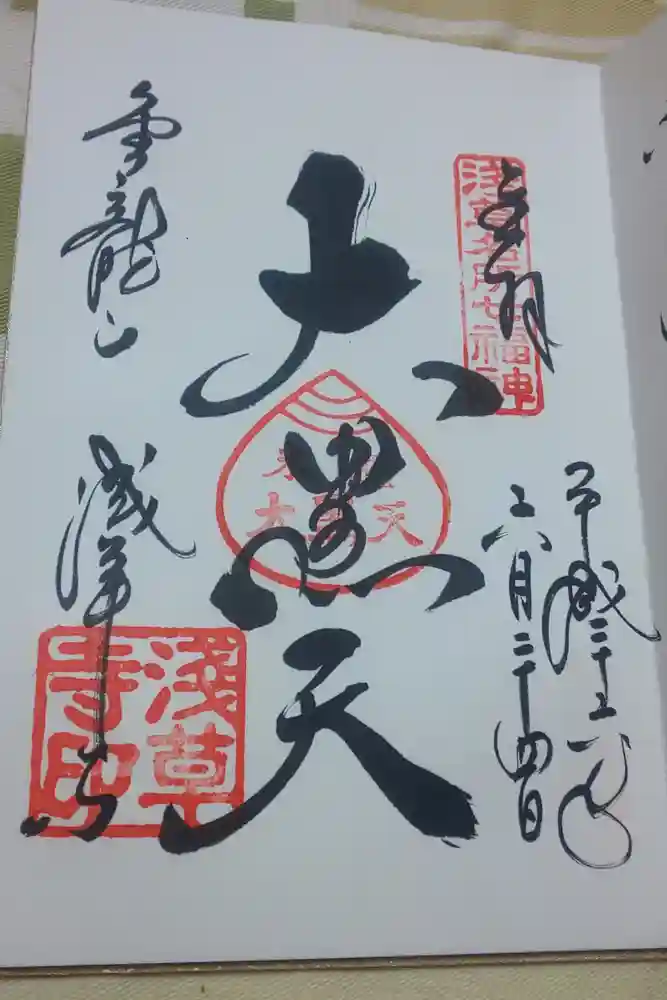 奉拝
浅草名所七福神
平成二十六年
六月二十四日
大黒天
金龍山
浅草寺
浅草寺印